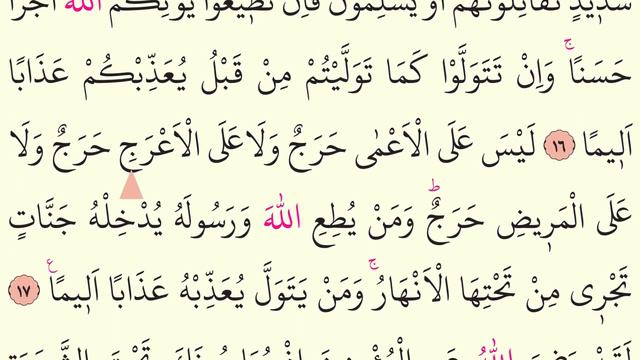 شَدٖيدٍ تُقَاتِلُونَهُمْ اَوْ يُسْلِمُونَ فَاِنْ تُطٖيعُوا يُؤْتِكُمُ اللّٰهُ اَجْرًا
حَسَنًا ج وَاِنْ تَتَوَلَّوْا كَمَا تَوَلَّيْتُمْ مِنْ قَبْلُ يُعَذِّبْكُمْ عَذَابًا
اَلٖيمًا ١٦ لَيْسَ عَلَى الْاَعْمٰى حَرَجٌ وَلَا عَلَى الْاَعْرَجِ حَرَجٌ وَلَا
عَلَى الْمَرٖيضِ حَرَجٌ ط وَمَنْ يُطِعِ اللّٰهَ وَرَسُولَهُ يُدْخِلْهُ جَنَّاتٍ
تَجْرٖى مِنْ تَحْتِهَا الْاَنْهَارُ ج وَمَنْ يَتَوَلَّ يُعَذِّبْهُ عَذَابًا اَلٖيمًا ع ١٧